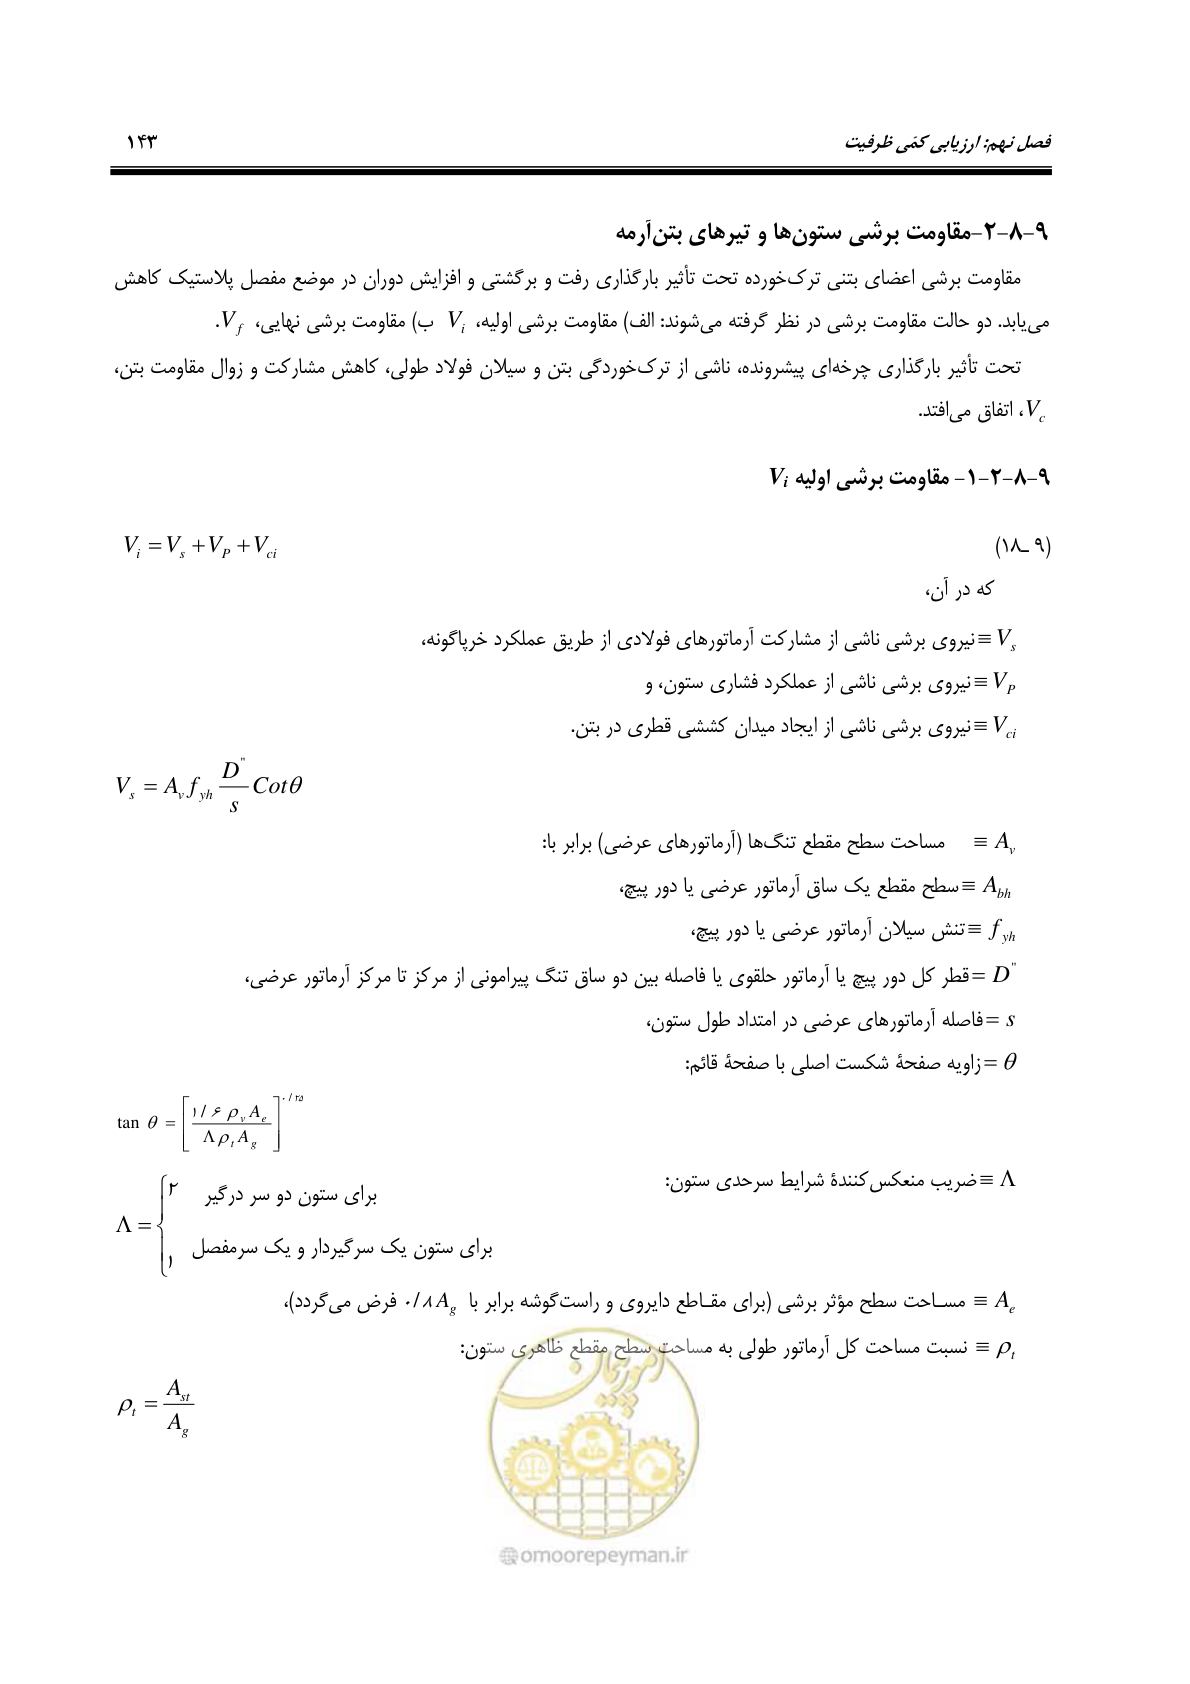 فصل نهم: ارزیابی کمّی ظرفیت ۱۴۳
۹-۸-۲-مقاومت برشی ستون‌ها و تیرهای بتن‌آرمه
مقاومت برشی اعضای بتنی ترک‌خورده تحت تأثیر بارگذاری رفت و برگشتی و افزایش دوران در موضع مفصل پلاستیک کاهش
می‌یابد. دو حالت مقاومت برشی در نظر گرفته می‌شوند: الف) مقاومت برشی اولیه، V_i ب) مقاومت برشی نهایی، V_f.
تحت تأثیر بارگذاری چرخه‌ای پیشرونده، ناشی از ترک‌خوردگی بتن و سیلان فولاد طولی، کاهش مشارکت و زوال مقاومت بتن،
V_c، اتفاق می‌افتد.
۹-۸-۲-۱- مقاومت برشی اولیه V_i
(۹ـ۱۸) V_i = V_s + V_P + V_ci
که در آن،
V_s ≡ نیروی برشی ناشی از مشارکت آرماتورهای فولادی از طریق عملکرد خرپاگونه،
V_P ≡ نیروی برشی ناشی از عملکرد فشاری ستون، و
V_ci ≡ نیروی برشی ناشی از ایجاد میدان کششی قطری در بتن.
V_s = A_v f_yh D"/s Cotθ
A_v ≡ مساحت سطح مقطع تنگ‌ها (آرماتورهای عرضی) برابر با:
A_bh ≡ سطح مقطع یک ساق آرماتور عرضی یا دور پیچ،
f_yh ≡ تنش سیلان آرماتور عرضی یا دور پیچ،
D" = قطر کل دور پیچ یا آرماتور حلقوی یا فاصله بین دو ساق تنگ پیرامونی از مرکز تا مرکز آرماتور عرضی،
s = فاصله آرماتورهای عرضی در امتداد طول ستون،
θ = زاویه صفحهٔ شکست اصلی با صفحهٔ قائم:
tan θ = [۱/۶ ρ_v A_e / Λ ρ_t A_g]^۰/۲۵
Λ ≡ ضریب منعکس‌کنندهٔ شرایط سرحدی ستون:
Λ = { ۲ برای ستون دو سر درگیر
۱ برای ستون یک سرگیردار و یک سرمفصل
A_e ≡ مساحت سطح مؤثر برشی (برای مقاطع دایروی و راست‌گوشه برابر با ۰/۸A_g فرض می‌گردد)،
ρ_t ≡ نسبت مساحت کل آرماتور طولی به مساحت سطح مقطع ظاهری ستون:
ρ_t = A_st / A_g
امور پیمان
@omoorepeyman.ir